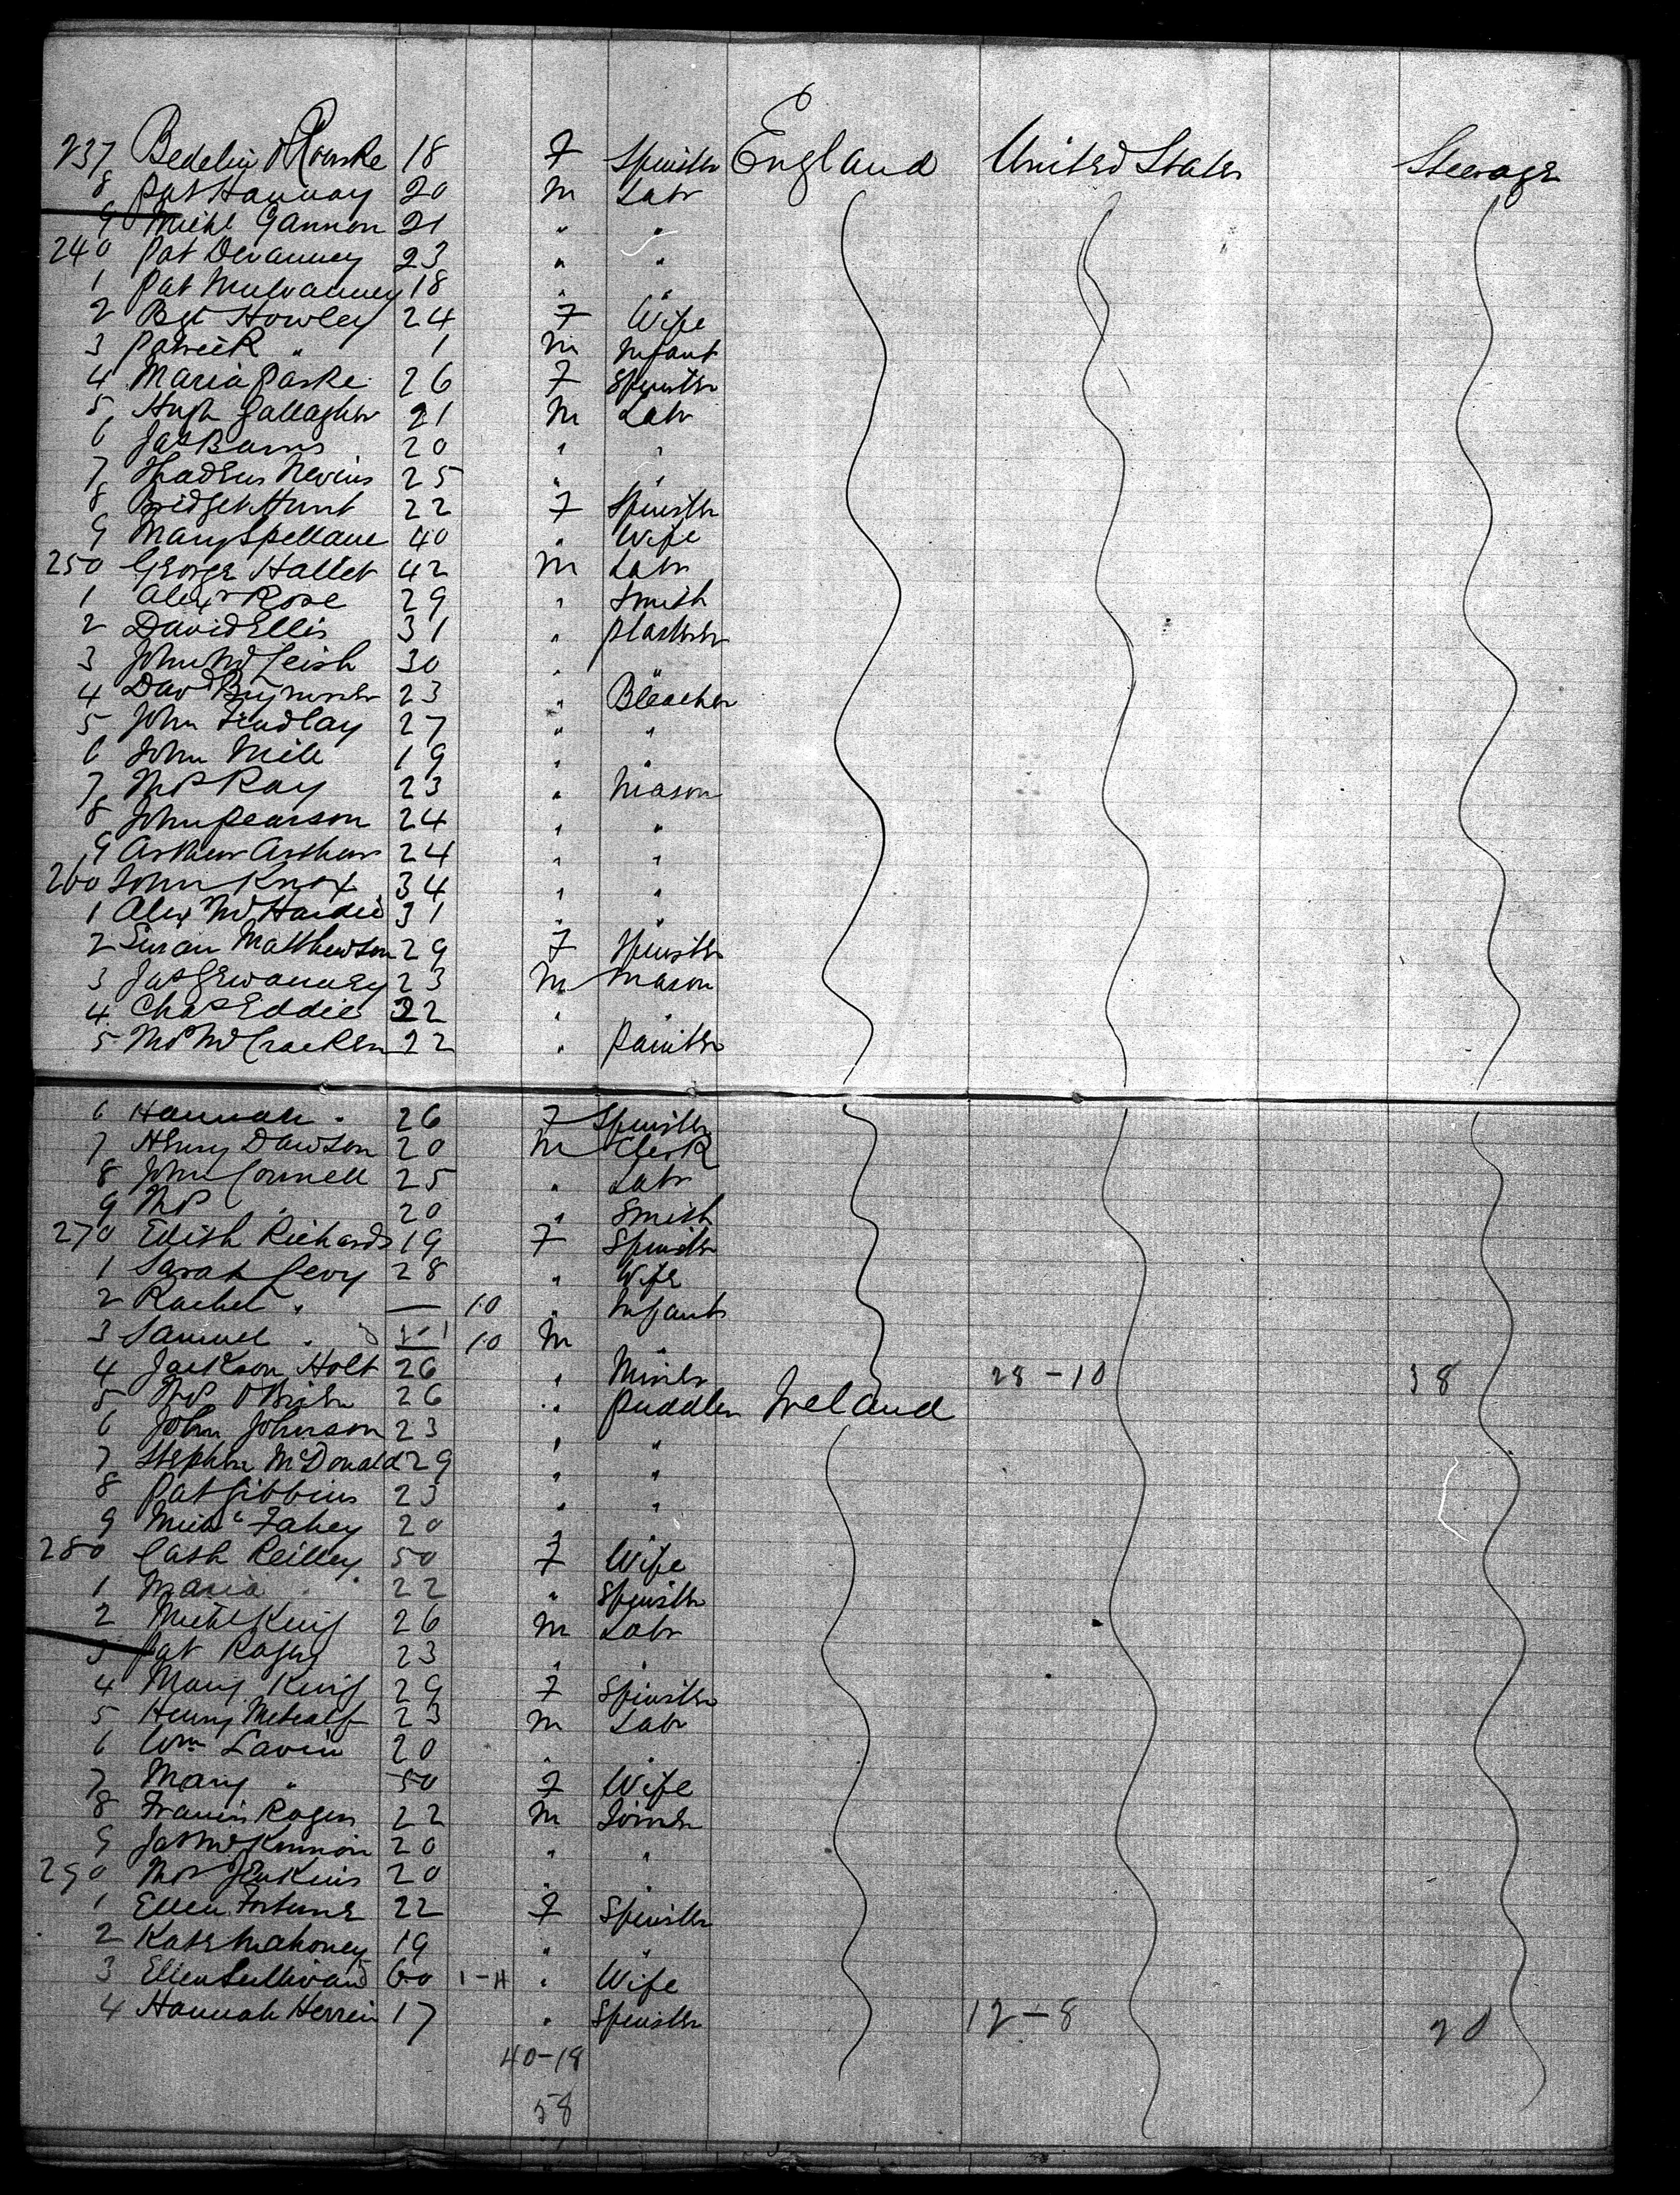 237 Bedelia O'Rourke 18 F Spinster England United States Steerage
8 Pat Hannay 20 M Labr
9 Michl Gannon 21 " "
240 Pat Devanney 23 " "
1 Pat Mulvanney 18 " "
2 Bgt Howley 24 F Wife
3 Patrick " 1 M Infant
4 Maria Parke 26 F Spinster
5 Hugh Gallagher 21 M Labr
6 Jas Burns 20 " "
7 Thadeus Nevins 25 " "
8 Bridget Hunt 22 F Spinster
9 Mary Spellane 40 " Wife
250 George Hallet 42 M Labr
1 Alexr Rose 29 " Smith
2 David Ellis 31 " Plasterer
3 John McLeish 30 " "
4 Davd 23 " Bleacher
5 John Findlay 27 " "
6 John Mill 19 " "
7 Thos Kay 23 " Mason
8 John Pearson 24 " "
9 Arthur Arthur 24 " "
260 John Knox 34 " "
1 Alex McHardie 31 " "
2 Susan Matthewson 29 F Spinster
3 Jas 23 M Mason
4 Chas Eddie 22 " "
5 Thos McCracken 22 " Painter
6 Hannah " 26 F Spinster
7 Henry Dawson 20 M Clerk
8 John Connell 25 " Labr
9 Thos " 20 " Smith
270 Edith Richards 19 F Spinster
1 Sarah Levy 28 " Wife
2 Rachel " — 10 " Infant
3 Samuel " 10 M "
4 Jackson Holt 26 " Miner 28-10 38
5 Thos O'Brien 26 " Puddler Ireland
6 John Johnson 23 " "
7 Stephen McDonald 29 " "
8 Pat Gibbins 23 " "
9 Michl Fahey 20 " "
280 Cath Reilley 50 F Wife
1 Maria " 22 " Spinster
2 Michl King 26 M Labr
3 Pat Rogers 23 " "
4 Mary King 29 F Spinster
5 Henry Metcalf 23 M Labr
6 Wm Lavin 20 " "
7 Mary " 50 F Wife
8 Francis Rogers 22 M Joiner
9 Jas McKinnon 20 " "
290 Thos Jenkins 20 " "
1 Ellen Fortune 22 F Spinster
2 Kate Mahoney 19 " "
3 Ellen Sullivan 60 1-11 " Wife
4 Hannah Herrin 17 " Spinster 12-8 20
40-18
58